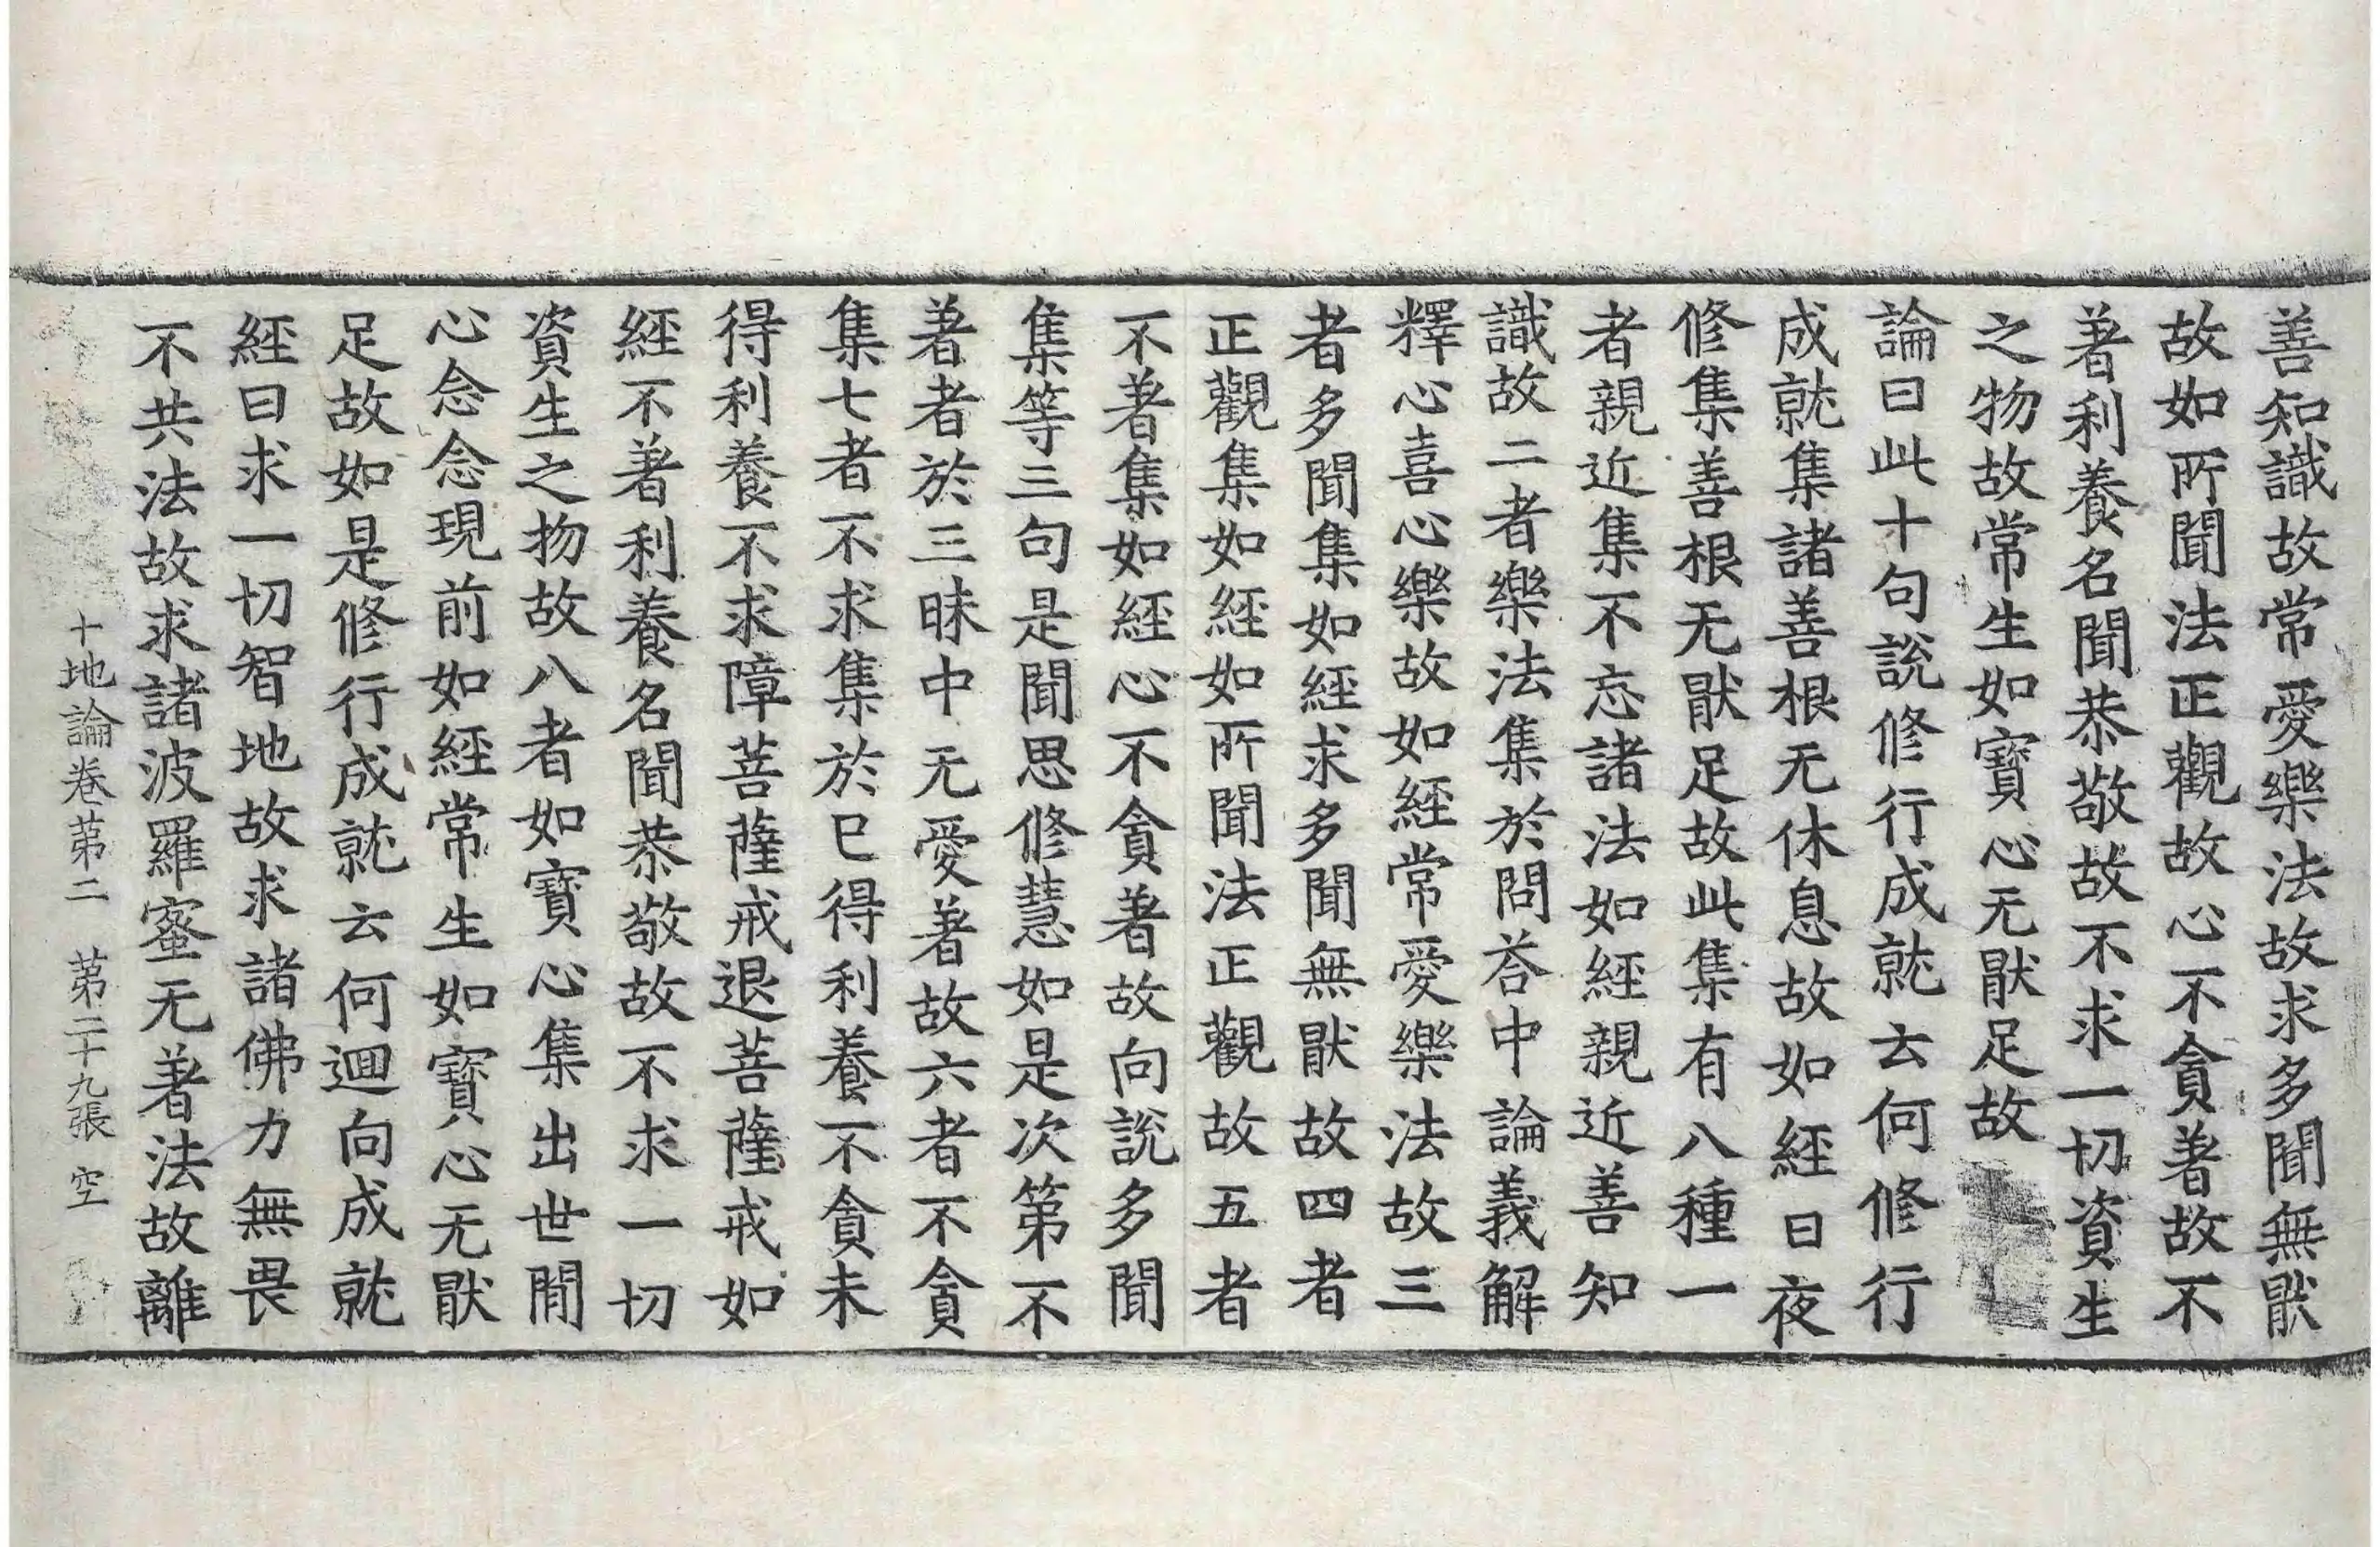 善知識故常愛樂法故求多聞無猒
故如所聞法正觀故心不貪著故不
著利養名聞恭敬故不求一切資生
之物故常生如寶心无猒足故
論曰此十句說修行成就云何修行
成就集諸善根无休息故如經日夜
修集善根无猒足故此集有八種一
者親近集不忘諸法如經親近善知
識故二者樂法集於問荅中論義解
釋心喜心樂故如經常愛樂法故三
者多聞集如經求多聞無猒故四者
正觀集如經如所聞法正觀故五者
不著集如經心不貪著故向說多聞
集等三句是聞思修慧如是次第不
著者於三昧中无愛著故六者不貪
集七者不求集於已得利養不貪未
得利養不求障菩薩戒退菩薩戒如
經不著利養名聞恭敬故不求一切
資生之物故八者如寶心集出世間
心念念現前如經常生如寶心无猒
足故如是修行成就云何迴向成就
經曰求一切智地故求諸佛力無畏
不共法故求諸波羅蜜无著法故離
十地論卷苐二 苐二十九張 空